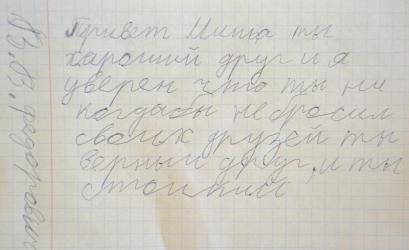 Привет Миша ты
хароший друг и я
уверен что ты ни
когдабы не бросил
своих друзей ты
верный друг, и ты
В.В. Федорович